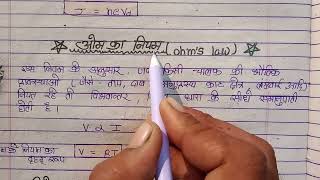 J = neVd
ओम का नियम (ohm's law)
इस नियम के अनुसार, यदि किसी चालक की भौतिक
अवस्थाओं (जैसे - ताप, दाब, अनुप्रस्थ काट क्षेत्र, लम्बाई आदि)
स्थिर रहे तो विभवान्तर, धारा के सीधे समानुपाती
होती है।
V α I
नियम का
V = RI